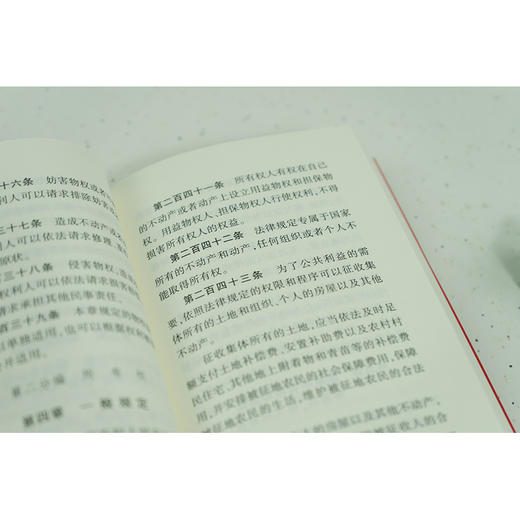 十六条 妨害物权或者
利人可以请求排除妨害
三十七条 造成不动产或
人可以依法请求修理、
原状。
三十八条 侵害物权,
权利人可以依法请求损害
请求承担其他民事责任。
三十九条 本章规定的物
以单独适用,也可以根据权利
并适用。
第二分编 所有权
第四章 一般规定
第二百四十一条 所有权人有权在自己
的不动产或者动产上设立用益物权和担保物
权。用益物权人、担保物权人行使权利,不得
损害所有权人的权益。
第二百四十二条 法律规定专属于国家
所有的不动产和动产,任何组织或者个人不
能取得所有权。
第二百四十三条 为了公共利益的需
要,依照法律规定的权限和程序可以征收集
体所有的土地和组织、个人的房屋以及其他
不动产。
征收集体所有的土地,应当依法及时足
额支付土地补偿费、安置补助费以及农村村
民住宅、其他地上附着物和青苗等的补偿费
用,并安排被征地农民的社会保障费用,保障
被征地农民的生活,维护被征地农民的合法
人的房屋以及其他不动产,
被征收人的合